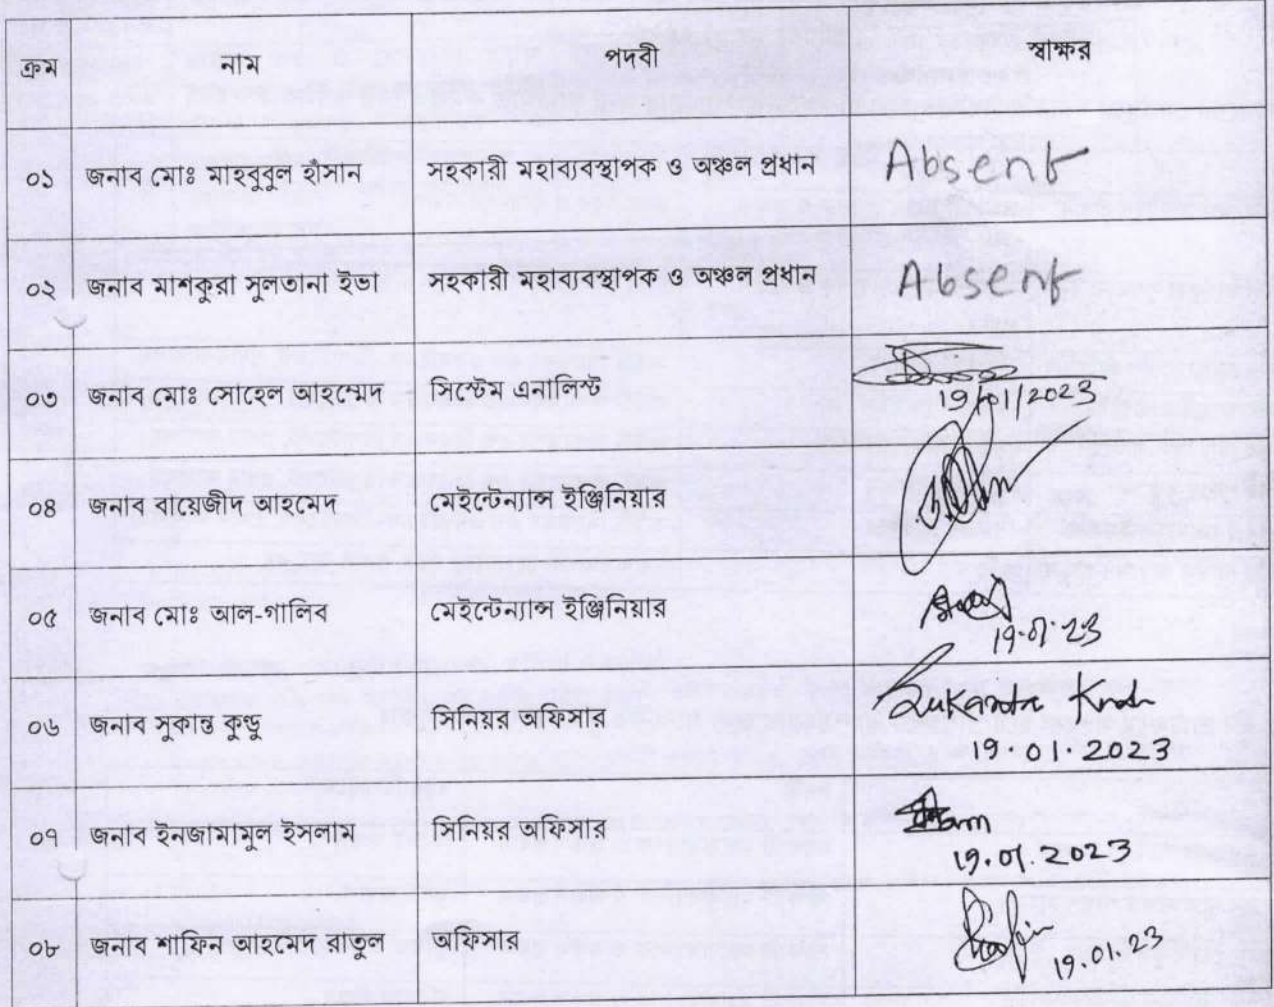 ক্রম নাম পদবী স্বাক্ষর
০১ জনাব মোঃ মাহবুবুল হাঁসান সহকারী মহাব্যবস্থাপক ও অঞ্চল প্রধান Absent
০২ জনাব মাশকুরা সুলতানা ইভা সহকারী মহাব্যবস্থাপক ও অঞ্চল প্রধান Absent
০৩ জনাব মোঃ সোহেল আহম্মেদ সিস্টেম এনালিস্ট
19/01/2023
০৪ জনাব বায়েজীদ আহমেদ মেইন্টেন্যান্স ইঞ্জিনিয়ার
০৫ জনাব মোঃ আল-গালিব মেইন্টেন্যান্স ইঞ্জিনিয়ার
19.01.23
০৬ জনাব সুকান্ত কুন্ডু সিনিয়র অফিসার Sukanta
19.01.2023
০৭ জনাব ইনজামামুল ইসলাম সিনিয়র অফিসার
19.01.2023
০৮ জনাব শাফিন আহমেদ রাতুল অফিসার
19.01.23